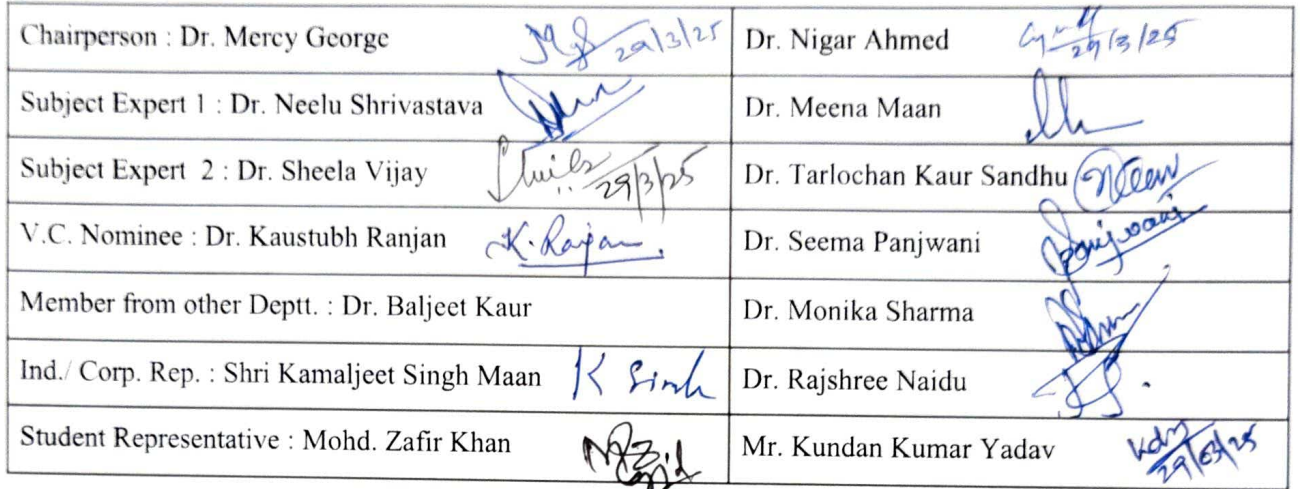 Chairperson : Dr. Mercy George 29/3/25
Dr. Nigar Ahmed 29/3/25
Subject Expert 1 : Dr. Neelu Shrivastava
Dr. Meena Maan
Subject Expert 2 : Dr. Sheela Vijay 29/3/25
Dr. Tarlochan Kaur Sandhu
V.C. Nominee : Dr. Kaustubh Ranjan K. Ranjan
Dr. Seema Panjwani Panjwani
Member from other Deptt. : Dr. Baljeet Kaur
Dr. Monika Sharma
Ind./ Corp. Rep. : Shri Kamaljeet Singh Maan K Singh
Dr. Rajshree Naidu
Student Representative : Mohd. Zafir Khan
Mr. Kundan Kumar Yadav 29/03/25